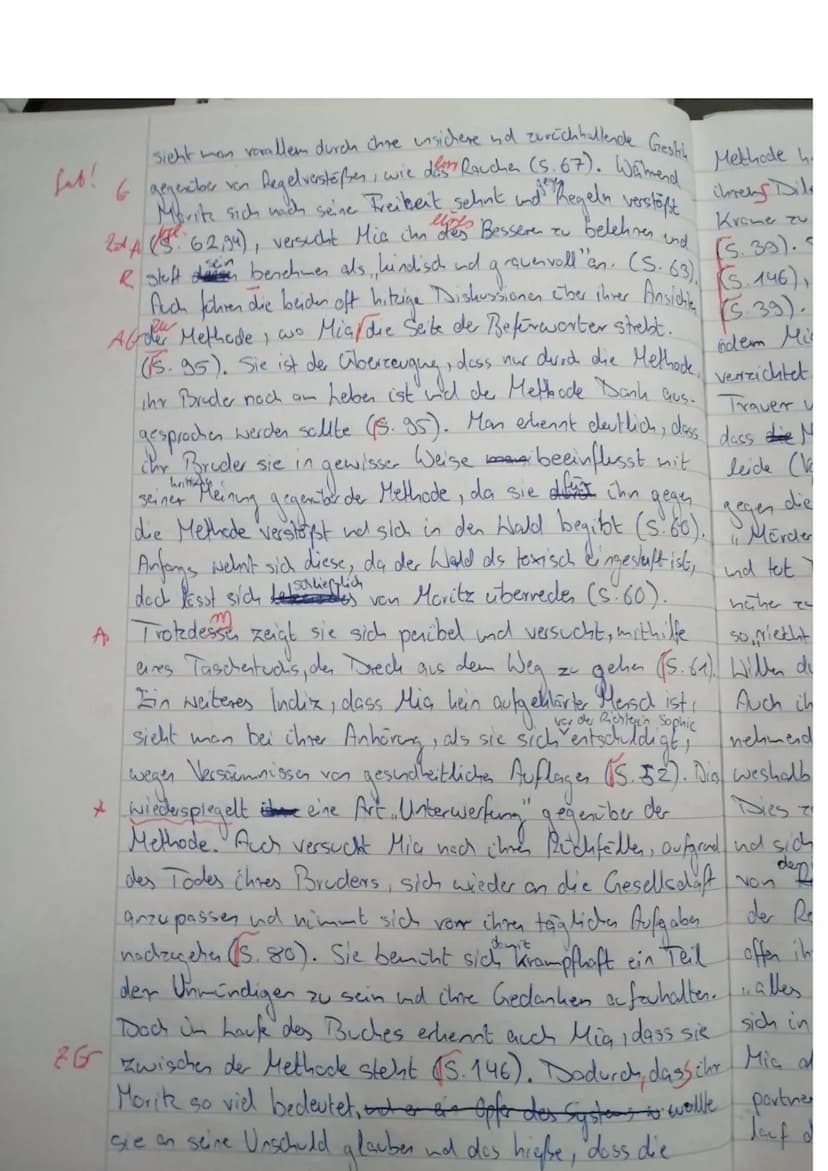 sieht man vorallem durch ihre unsichere und zurückhaltende Gestik
gegenüber von Regelverstößen, wie dem Rauchen (S. 67). Während
Moritz sich nach seine Freiheit sehnt und gegen Regeln verstößt
(S. 62,94), versucht Mia ihn eines Besseren zu belehren und
stellt sein benehmen als „kindisch und grauenvoll" an. (S. 63).
Auch führen die beiden oft hitzige Diskussionen über ihrer Ansichten
zur Methode, wo Mia die Seite der Befürworter strebt.
(S. 95). Sie ist der Überzeugung, dass nur durch die Methode
ihr Bruder noch am leben ist und der Methode Dank aus-
gesprochen werden sollte (S. 95). Man erkennt deutlich, dass
ihr Bruder sie in gewisser Weise beeinflusst mit
seiner kritischen Meinung gegenüber der Methode, da sie ihn gegen
die Methode verstößt und sich in den Wald begibt (S. 60).
Anfangs wehrt sich diese, da der Wald als toxisch eingestuft ist,
doch lässt sich schließlich von Moritz überreden (S. 60).
Trotzdem zeigt sie sich penibel und versucht, mithilfe
eines Taschentuchs, den Dreck aus dem Weg zu gehen (S. 61)
Ein weiteres Indiz, dass Mia kein aufgeklärter Mensch ist,
sieht man bei ihrer Anhörung, als sie sich vor der Richterin Sophie entschuldigt,
wegen Versäumnissen von gesundheitlichen Auflagen (S. 52). Dies
wiederspiegelt eine Art „Unterwerfung" gegenüber der
Methode. Auch versucht Mia nach ihren Rückfällen, aufgrund
des Todes ihres Bruders, sich wieder an die Gesellschaft
anzupassen und nimmt sich vor ihren täglichen Aufgaben
nachzugehen (S. 80). Sie bemüht sich damit krampfhaft ein Teil
der Unmündigen zu sein und ihre Gedanken aufzuhalten.
Doch im Laufe des Buches erkennt auch Mia, dass sie
zwischen der Methode steht (S. 146). Dadurch, dass ihr
Moritz so viel bedeutet, wollte
sie an seine Unschuld glauben und das hieße, dass die
Sat!
G
A
R
A
Gr
A
Z Gr
Methode
ihrem
Kramer zu
(S. 39).
(S. 146),
(S. 39).
verzichtet
Trauer
dass
leide
gegen die
„Mörder
und tot
näher
Willen
Auch
nehmend
weshalb
Dies
und sich
von den
der
offen
„alles
sich in
Mia
partner